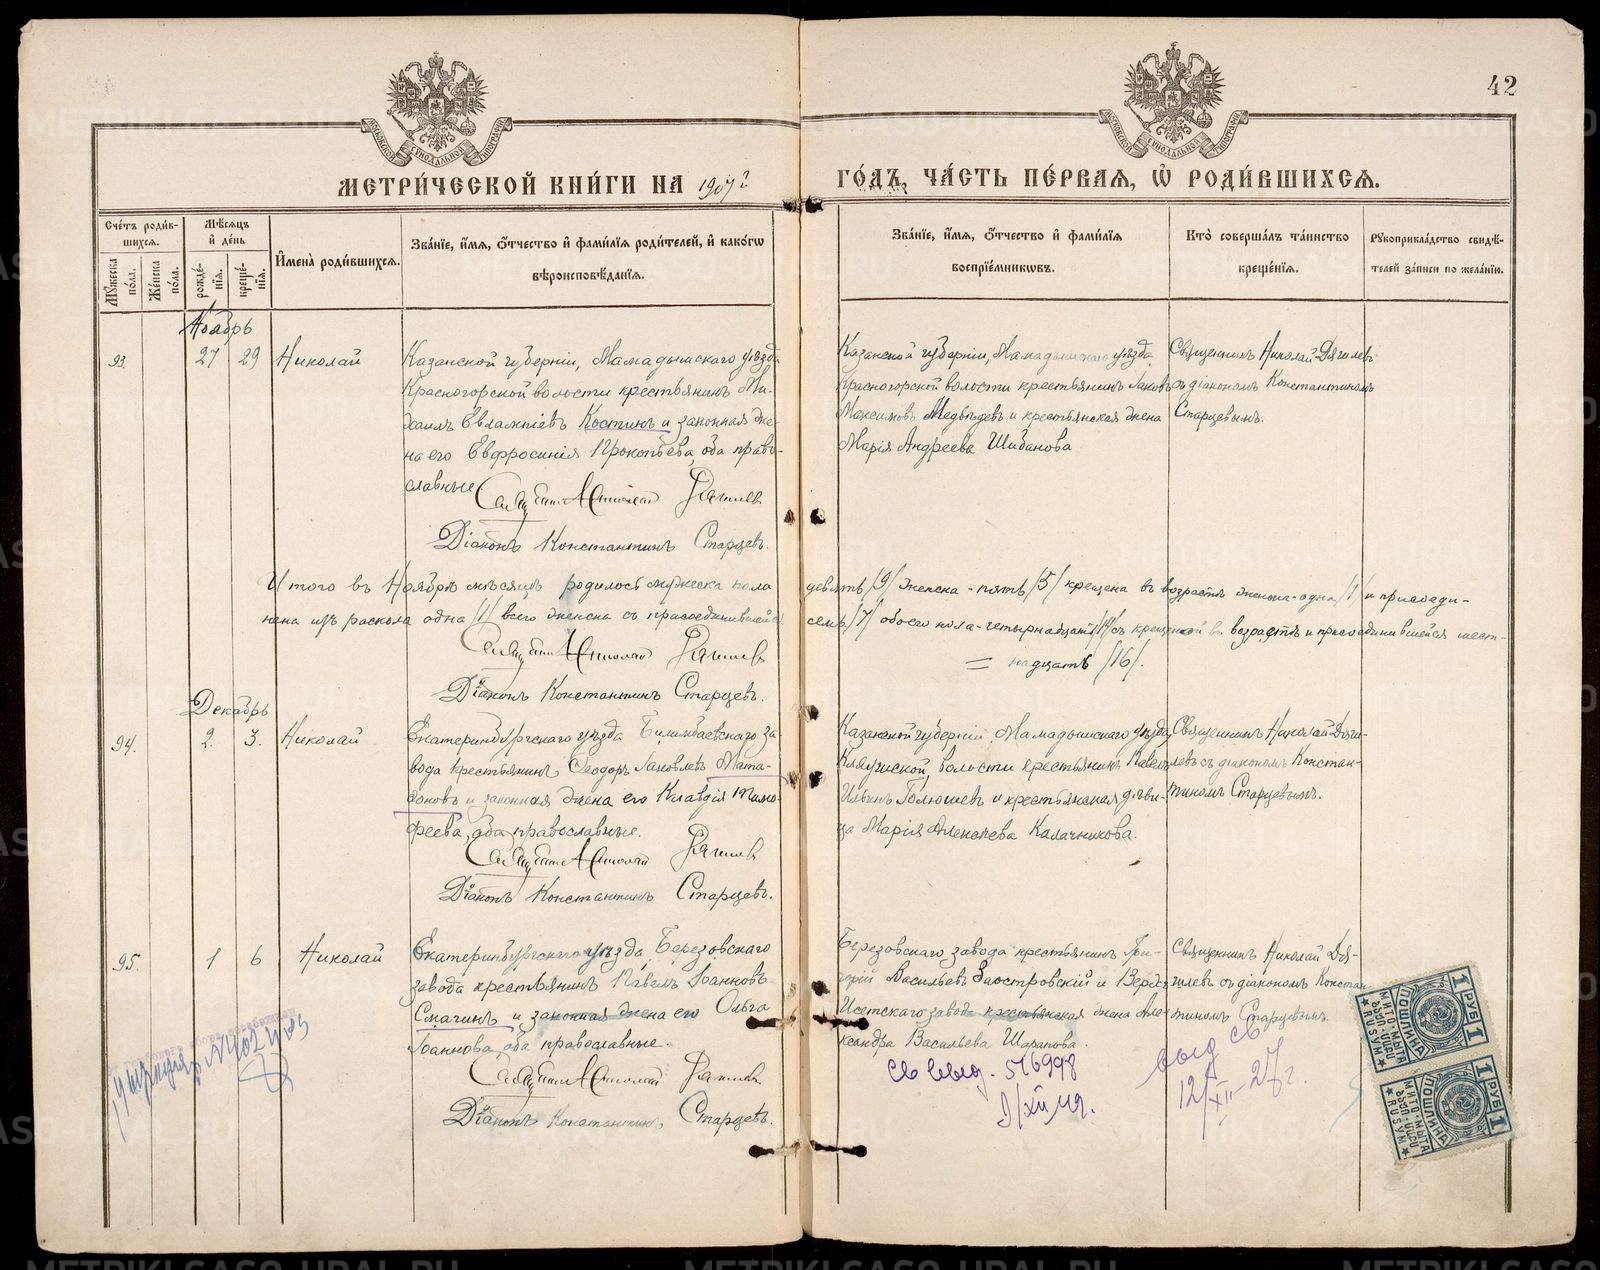 42
МОСКОВСКОЙ СѴНОДАЛЬНОЙ ТИПОГРАФІИ
МОСКОВСКОЙ СѴНОДАЛЬНОЙ ТИПОГРАФІИ
МЕТРИ́ЧЕСКОЙ КНИ́ГИ НА 1907 г.
ГО́ДЪ, ЧА́СТЬ ПЕ́РВАЯ, Ѡ РОДИ́ВШИХСЯ.
Сче́тъ роди́вшихся.
Мꙋ́жеска по́ла.
Же́нска по́ла.
Мѣ́сяцъ и҆ де́нь
рожде́нїя.
креще́нїя.
И҆мена̀ роди́вшихся.
Зва́нїе, и҆́мя, ѻ҆́тчество и҆ фами́лїя роди́телей, и҆ како́гѡ
вѣроисповѣ́данїя.
Зва́нїе, и҆́мя, ѻ҆́тчество и҆ фами́лїя
воспрїе́мникѡвъ.
Кто̀ соверша́лъ та́инство
креще́нїя.
Рꙋкоприкла́дство свидѣ́-
телей за́писи по жела́нїю.
Ноябрь
93. 27 29 Николай
Казанской губерніи, Мамадышскаго уѣзда
Красногорской волости крестьянинъ Ми-
хаилъ Евлампіевъ Костинъ и законная же-
на его Евфросинія Прокопьева, оба право-
славные.
Священникъ Николай Дягилевъ
Діаконъ Константинъ Старцевъ.
Казанской губерніи, Мамадышскаго уѣзда
Красногорской волости крестьянинъ Іаковъ
Максимовъ Медвѣдевъ и крестьянская жена
Марія Андреева Шибанова
Священникъ Николай Дягилевъ
съ діакономъ Константиномъ
Старцевымъ.
Итого въ Ноябрѣ мѣсяцѣ родилось мужеска пола девять /9/ женска - пять /5/ крещена въ возрастѣ женска - одна /1/ и присоеди-
нена изъ раскола одна /1/ всего женска съ присоединившейся семь /7/ обоего пола - четырнадцать /14/ съ крещеной въ возрастѣ и присоединившейся шест-
= надцать /16/.
Священникъ Николай Дягилевъ
Діаконъ Константинъ Старцевъ.
Декабрь
94. 2. 3. Николай
Екатеринбургскаго уѣзда Билимбаевскаго за-
вода крестьянинъ Ѳеодоръ Іаковлевъ Мата-
фоновъ и законная жена его Клавдія Тимо-
феева, оба православные.
Священникъ Николай Дягилевъ
Діаконъ Константинъ Старцевъ.
Казанской губерніи, Мамадышскаго уѣзда,
Кляушской волости крестьянинъ Павелъ
Ильинъ Голюшевъ и крестьянская дѣви-
ца Марія Алексѣева Калачникова.
Священникъ Николай Дяги-
левъ съ діакономъ Констан-
тиномъ Старцевымъ.
95. 1 6 Николай
Екатеринбургскаго уѣзда, Березовскаго
завода крестьянинъ Павелъ Іоанновъ
Смагинъ и законная жена его Ольга
Іоаннова, оба православные.
Священникъ Николай Дягилевъ
Діаконъ Константинъ Старцевъ.
Березовскаго завода крестьянинъ Гри-
горій Васильевъ Заостровскій и Верхъ-
Исетскаго завода крестьянская жена Але-
ксандра Васильева Шарапова.
Священникъ Николай Дя-
гилевъ съ діакономъ Констан-
тиномъ Старцевымъ.
576998
выд св
12/XII-27 г.
1 РУБ 1
ПОШЛИНА
1 РУБ 1
ПОШЛИНА